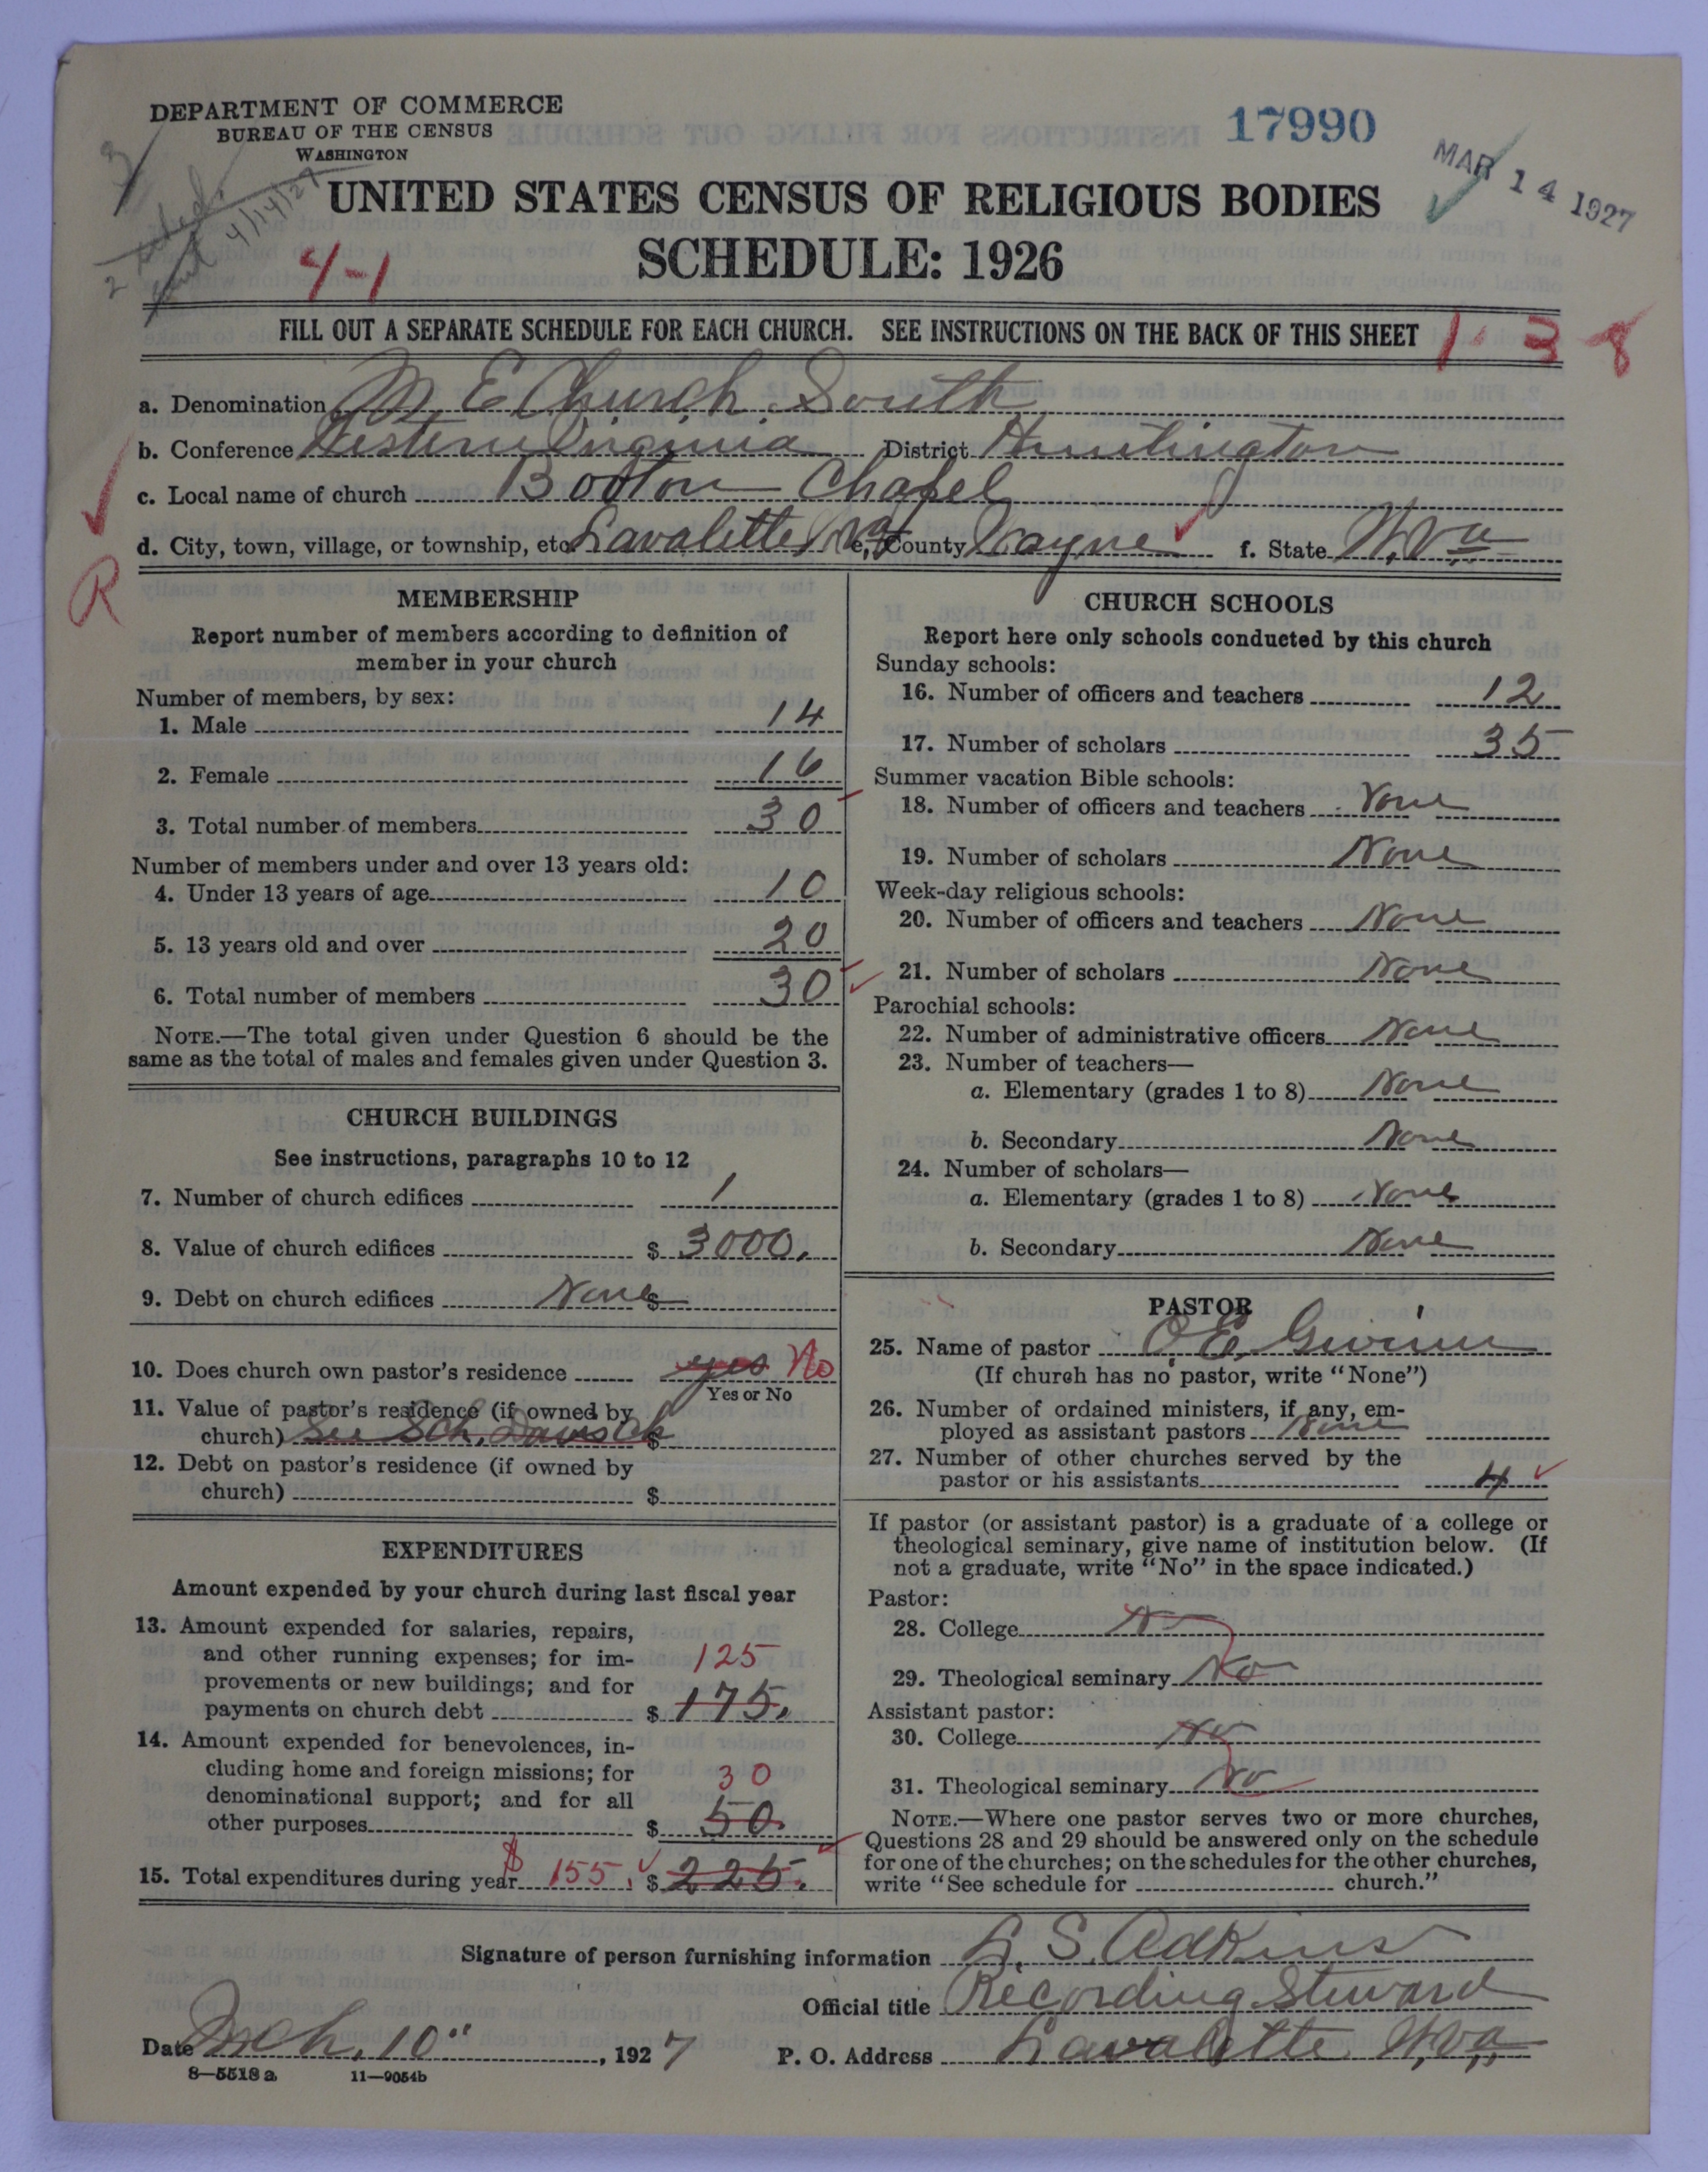 DEPARTMENT OF COMMERCE
BUREAU OF THE CENSUS
WASHINGTON
17990
MAR 14 1927
UNITED STATES CENSUS OF RELIGIOUS BODIES
SCHEDULE: 1926
4/14/27
4-1
FILL OUT A SEPARATE SCHEDULE FOR EACH CHURCH. SEE INSTRUCTIONS ON THE BACK OF THIS SHEET
1-3-8
a. Denomination M. E. Church South
b. Conference Western Virginia District Huntington
c. Local name of church Booton Chapel
d. City, town, village, or township, etc. Lavalette W Va e. County Wayne f. State W. Va
R
MEMBERSHIP
Report number of members according to definition of
member in your church
Number of members, by sex:
1. Male 14
2. Female 16
3. Total number of members 30
Number of members under and over 13 years old:
4. Under 13 years of age 10
5. 13 years old and over 20
6. Total number of members 30
NOTE.—The total given under Question 6 should be the
same as the total of males and females given under Question 3.
CHURCH BUILDINGS
See instructions, paragraphs 10 to 12
7. Number of church edifices 1
8. Value of church edifices $ 3000.
9. Debt on church edifices None $
10. Does church own pastor's residence yes No
Yes or No
11. Value of pastor's residence (if owned by
church) See Sch. Davis Ch $
12. Debt on pastor's residence (if owned by
church) $
EXPENDITURES
Amount expended by your church during last fiscal year
13. Amount expended for salaries, repairs,
and other running expenses; for im-
provements or new buildings; and for 125
payments on church debt $ 175.
14. Amount expended for benevolences, in-
cluding home and foreign missions; for
denominational support; and for all 30
other purposes $ 50.
15. Total expenditures during year $ 155. $ 225.
CHURCH SCHOOLS
Report here only schools conducted by this church
Sunday schools:
16. Number of officers and teachers 12
17. Number of scholars 35
Summer vacation Bible schools:
18. Number of officers and teachers None
19. Number of scholars None
Week-day religious schools:
20. Number of officers and teachers None
21. Number of scholars None
Parochial schools:
22. Number of administrative officers None
23. Number of teachers—
a. Elementary (grades 1 to 8) None
b. Secondary None
24. Number of scholars—
a. Elementary (grades 1 to 8) None
b. Secondary None
PASTOR
25. Name of pastor O. E. Gwinn
(If church has no pastor, write "None")
26. Number of ordained ministers, if any, em-
ployed as assistant pastors None
27. Number of other churches served by the
pastor or his assistants 4
If pastor (or assistant pastor) is a graduate of a college or
theological seminary, give name of institution below. (If
not a graduate, write "No" in the space indicated.)
Pastor:
28. College No
29. Theological seminary No
Assistant pastor:
30. College No
31. Theological seminary No
NOTE.—Where one pastor serves two or more churches,
Questions 28 and 29 should be answered only on the schedule
for one of the churches; on the schedules for the other churches,
write "See schedule for church."
Signature of person furnishing information L. S. Adkins
Official title Recording Steward
Date Mch. 10", 1927 P. O. Address Lavalette W. Va,
8—5518 a 11—9054b